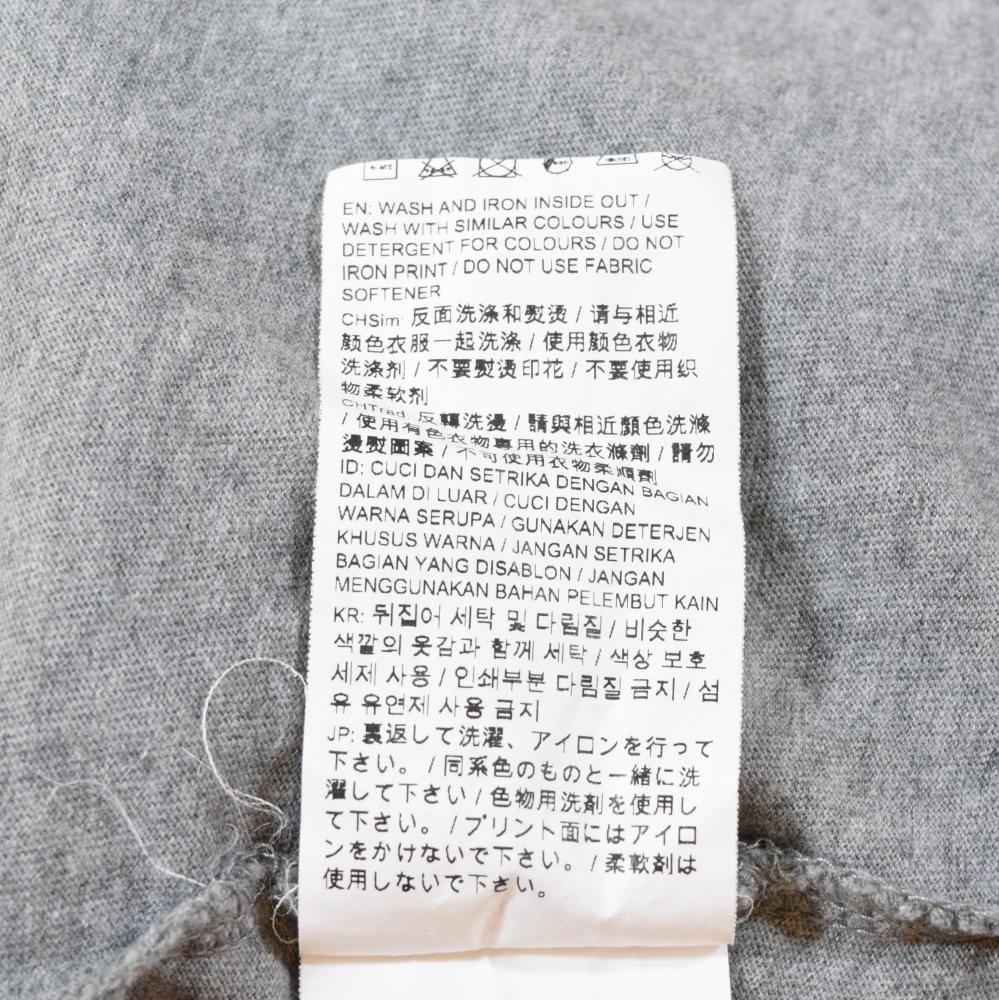 EN: WASH AND IRON INSIDE OUT /
WASH WITH SIMILAR COLOURS / USE
DETERGENT FOR COLOURS / DO NOT
IRON PRINT / DO NOT USE FABRIC
SOFTENER
CHSim: 反面洗涤和熨烫 / 请与相近
颜色衣服一起洗涤 / 使用颜色衣物
洗涤剂 / 不要熨烫印花 / 不要使用织
物柔软剂
CHTrad: 反轉洗燙 / 請與相近顏色洗滌
/ 使用有色衣物專用的洗衣滌劑 / 請勿
燙熨圖案 / 不可使用衣物柔順劑
ID: CUCI DAN SETRIKA DENGAN BAGIAN
DALAM DI LUAR / CUCI DENGAN
WARNA SERUPA / GUNAKAN DETERJEN
KHUSUS WARNA / JANGAN SETRIKA
BAGIAN YANG DISABLON / JANGAN
MENGGUNAKAN BAHAN PELEMBUT KAIN
KR: 뒤집어 세탁 및 다림질 / 비슷한
색깔의 옷감과 함께 세탁 / 색상 보호
세제 사용 / 인쇄부분 다림질 금지 / 섬
유 유연제 사용 금지
JP: 裏返して洗濯、アイロンを行って
下さい。 / 同系色のものと一緒に洗
濯して下さい / 色物用洗剤を使用し
て下さい。 / プリント面にはアイロ
ンをかけないで下さい。 / 柔軟剤は
使用しないで下さい。